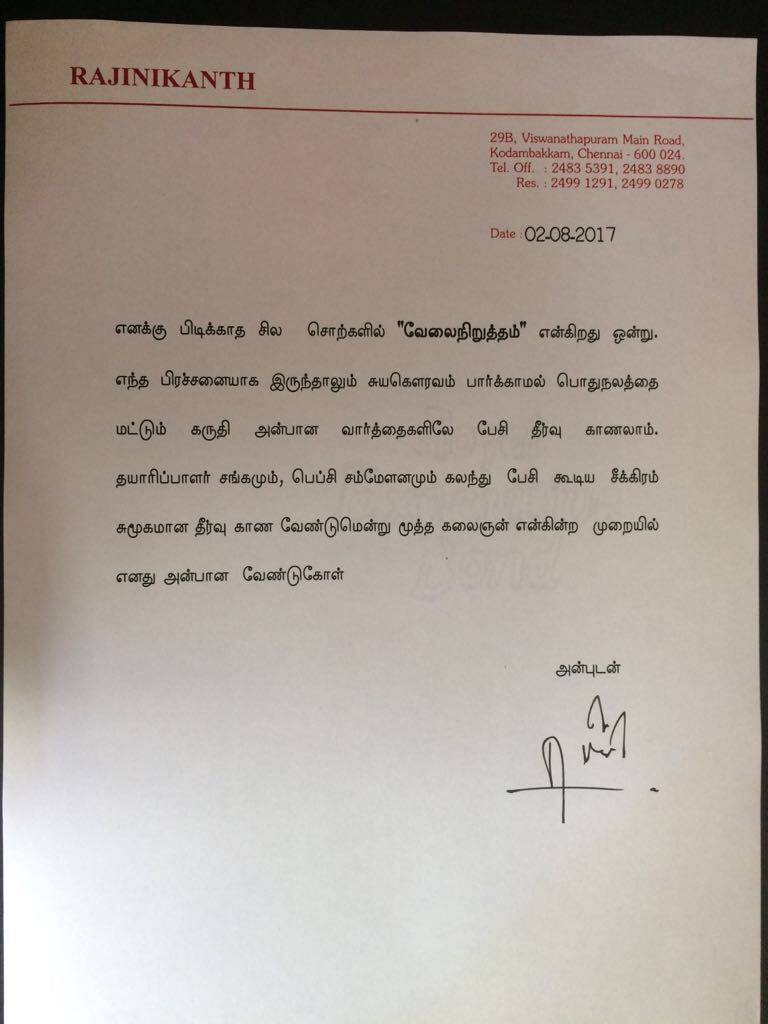 RAJINIKANTH
29B, Viswanathapuram Main Road,
Kodambakkam, Chennai - 600 024.
Tel. Off. : 2483 5391, 2483 8890
Res. : 2499 1291, 2499 0278
Date : 02-08-2017
எனக்கு பிடிக்காத சில சொற்களில் "வேலைநிறுத்தம்" என்கிறது ஒன்று.
எந்த பிரச்சனையாக இருந்தாலும் சுயகௌரவம் பார்க்காமல் பொதுநலத்தை
மட்டும் கருதி அன்பான வார்த்தைகளிலே பேசி தீர்வு காணலாம்.
தயாரிப்பாளர் சங்கமும், பெப்சி சம்மேளனமும் கலந்து பேசி கூடிய சீக்கிரம்
சுமூகமான தீர்வு காண வேண்டுமென்று மூத்த கலைஞன் என்கின்ற முறையில்
எனது அன்பான வேண்டுகோள்
அன்புடன்